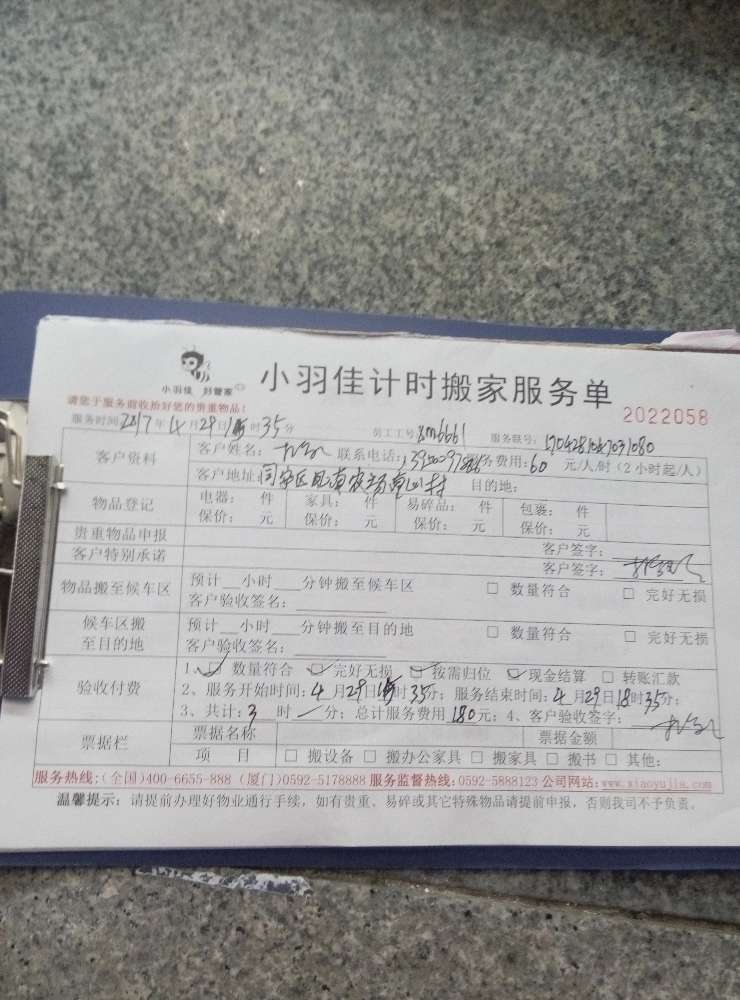 小羽佳 好管家
小羽佳计时搬家服务单
2022058
请您于服务前收拾好您的贵重物品！
服务时间2017年4月29日 时35分 员工工号:xm6661 服务联号:
客户资料 客户姓名: 联系电话: 服务费用:60 元/人/时（2小时起/人）
客户地址:同安区凤南农场 村 目的地:
物品登记 电器: 件 家具: 件 易碎品: 件 包裹: 件
保价: 元 保价: 元 保价: 元 保价: 元
贵重物品申报 客户签字:
客户特别承诺 客户签字:
物品搬至候车区 预计__小时___分钟搬至候车区 □ 数量符合 □ 完好无损
客户验收签名:
候车区搬至目的地 预计__小时___分钟搬至目的地 □ 数量符合 □ 完好无损
客户验收签名:
验收付费 1、☑ 数量符合 ☑ 完好无损 ☑ 按需归位 ☑ 现金结算 □ 转账汇款
2、服务开始时间:4月29日 时35分; 服务结束时间:4月29日18时35分;
3、共计:3 时 一 分; 总计服务费用 180元; 4、客户验收签字:
票据栏 票据名称 票据金额
项 目 □ 搬设备 □ 搬办公家具 □ 搬家具 □ 搬书 □ 其他:
服务热线:(全国)400-6655-888 (厦门)0592-5178888 服务监督热线:0592-5888123 公司网站:www.xiaoyujia.com
温馨提示: 请提前办理好物业通行手续, 如有贵重、易碎或其它特殊物品请提前申报, 否则我司不予负责。